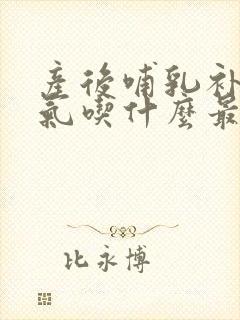 産後哺乳补
氣喫什麽最
比永博